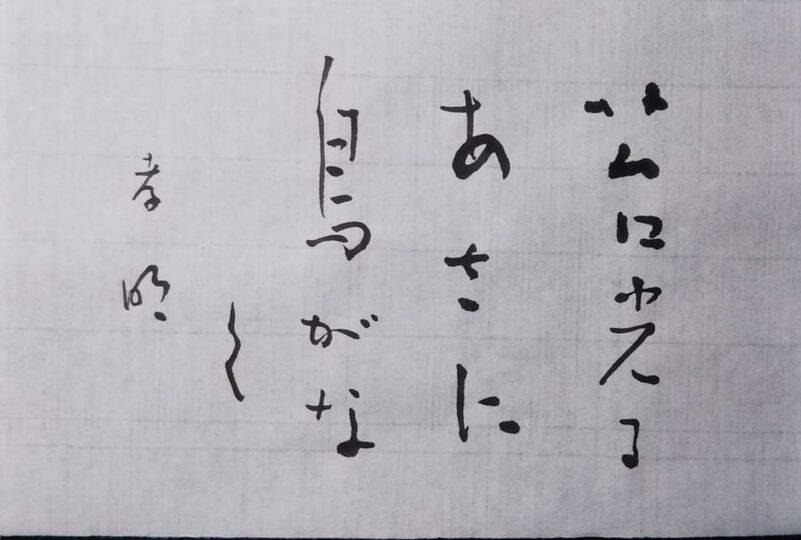 に光る
あさに
鳥がな
く
孝明